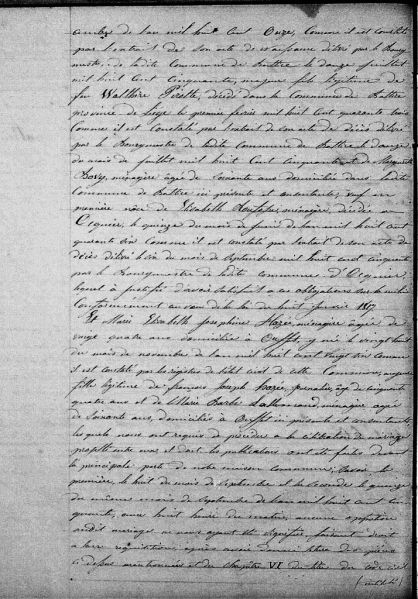 cembre de l'an mil huit Cent Onze, Comme il est constaté
par l'extrait de son acte de naissance délivré par le Bourg
mestre de la dite Commune de le douze juillet
mil huit Cent Cinquante, majeur fils légitime de
feu Walthère Pirotte, décédé dans la Commune de
province de Liège le premier février mil huit Cent quarante trois
Comme il est Constaté par l'extrait de son acte de décès délivré
par le Bourgmestre de la dite Commune de le douze
du mois de juillet mil huit Cent Cinquante et de Marguerite
Bovy, ménagère âgée de Soixante ans domiciliée dans la dite
Commune de ici présente et consentante, veuf en
première noce de Elisabeth ménagère, décédée à
Ocquier, le quinze du mois de juin de l'an mil huit Cent
quarante six comme il est constaté par l'extrait de son acte de
décès délivré le six du mois de Septembre mil huit cent cinquante
par le Bourgmestre de la dite commune d'Ocquier,
lequel a justifié d'avoir satisfait à ses obligations sur la milice
Conformément au vœu de la loi de huit janvier 1817
Et Marie Elisabeth Josephine Hazée, ménagère âgée de
vingt quatre ans domiciliée à Ouffet, y née le vingt huit
du mois de novembre de l'an mil huit cent vingt six comme
il est constaté par les registres de l'état civil de cette Commune, majeure
fille légitime de françois Joseph Hazée, journalier, âgé de cinquante
quatre ans et de Marie Barbe ménagère âgée
de Soixante ans, domiciliés à Ouffet ici présents et consentants,
lesquels nous ont requis de procéder à la célébration du mariage
projetté entre eux et dont les publications ont été faites devant
la principale porte de notre maison commune, Savoir la
première, le huit du mois de Septembre et la seconde le quinze
du même mois de Septembre de l'an mil huit cent cin
quante, aux huit heures du matin, aucune opposition
audit mariage ne nous ayant été signifiée, faisant droit
à leur réquisition après avoir donné lecture des pièces
ci dessus mentionnées et du chapitre VI du titre du code civil